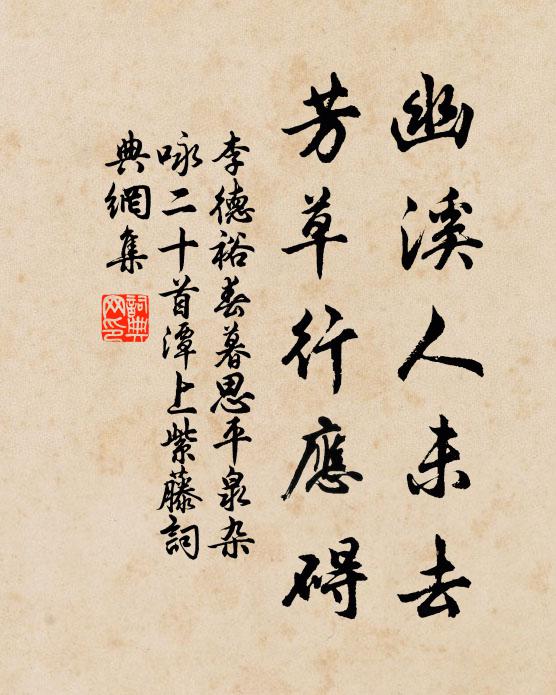 幽溪人未去
芳草行應碍
李德裕春暮思平泉杂
咏二十首潭上紫藤詞
典網集
詞典
网印